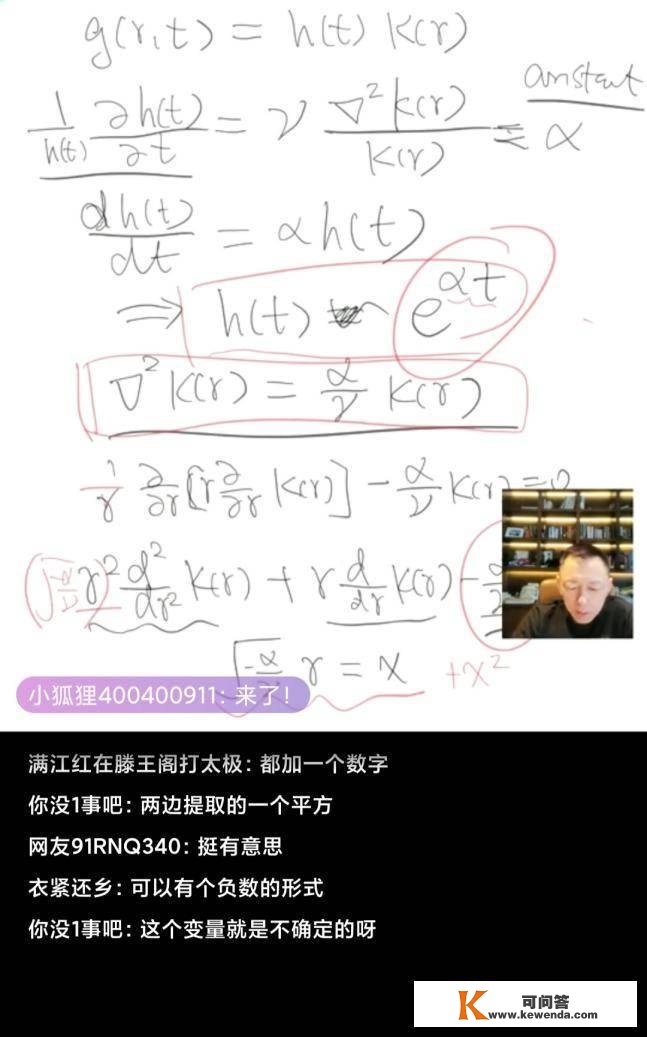 g(r,t) = h(t) K(r)
constant
1/h(t) ∂h(t)/∂t = ν ∇²K(r)/K(r) = α
dh(t)/dt = αh(t)
⇒ h(t) ~ e^{αt}
∇²K(r) = α/ν K(r)
1/r ∂/∂r [r ∂/∂r K(r)] - α/ν K(r) = 0
r² d²/dr² K(r) + r d/dr K(r) -
√-α/ν r = x +x²
小狐狸400400911: 来了!
满江红在滕王阁打太极: 都加一个数字
你没1事吧: 两边提取的一个平方
网友91RNQ340: 挺有意思
衣紧还乡: 可以有个负数的形式
你没1事吧: 这个变量就是不确定的呀
K 可问答
www.kewenda.com